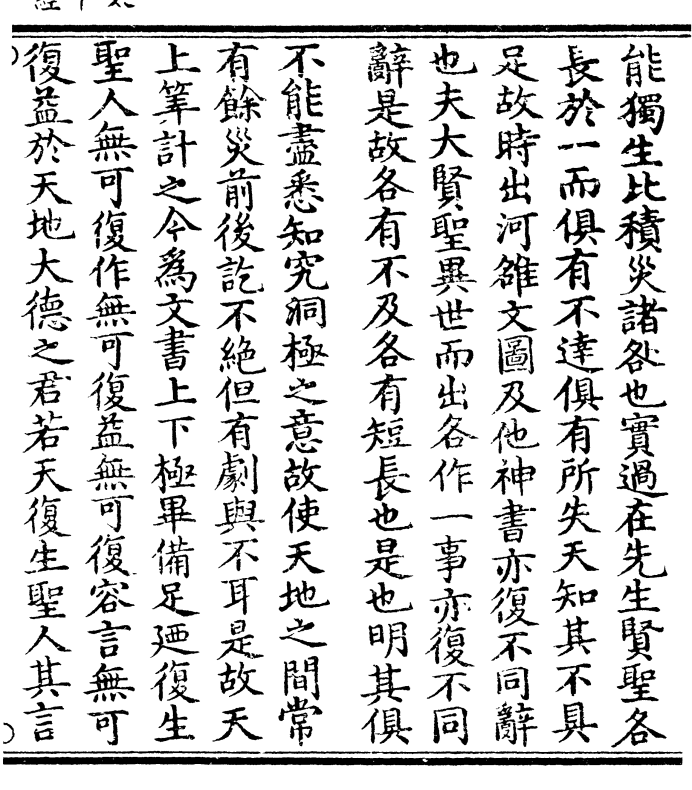 能獨生比積災諸咎也實過在先生賢聖各
長於一而俱有不達俱有所失天知其不具
足故時出河雒文圖及他神書亦復不同辭
也夫大賢聖異世而出各作一事亦復不同
辭是故各有不及各有短長也是也明其俱
不能盡悉知究洞極之意故使天地之間常
有餘災前後訖不絕但有劇與不耳是故天
上筭計之今爲文書上下極畢備足迺復生
聖人無可復作無可復益無可復容言無可
復益於天地大德之君若天復生聖人其言